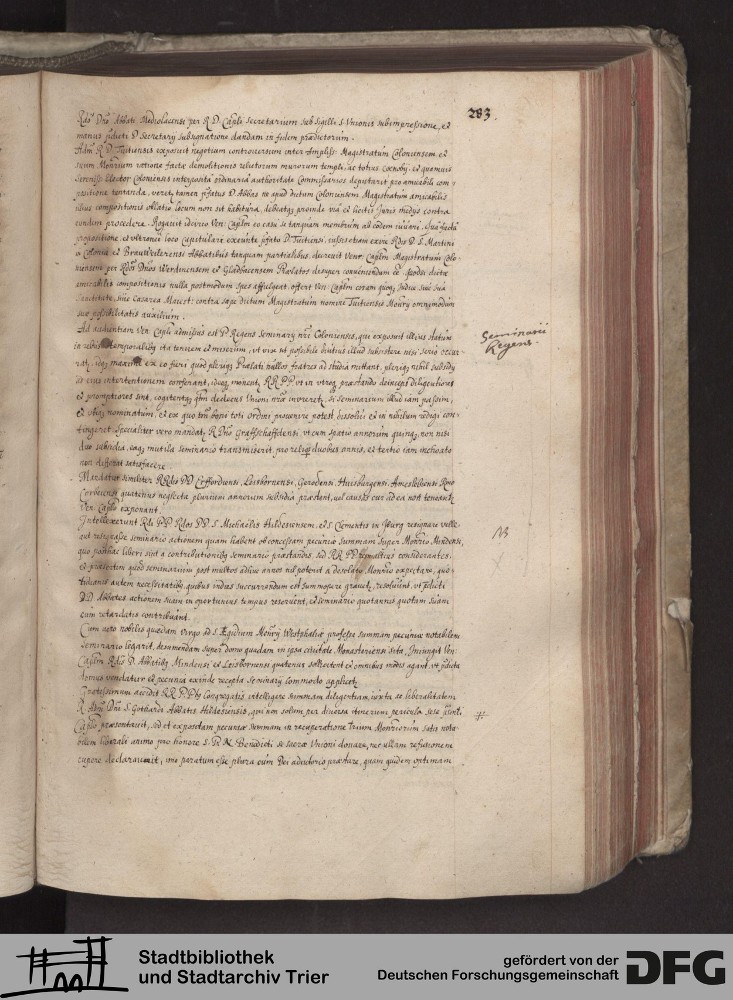 283.
Rdo Dno Abbati Mediolacensi per R D Capli Secretarium sub sigilli S. Unionis subimpressione, et
manus pdicti D Secretarij subsignatione dandam in fidem praedictorum.
Adm R D Tuitiensis exposuit negotium controversum inter Ampliss. Magistratum Coloniensem et
suum Monrium ratione factae demolitionis relictorum murorum templi, ac totius Coenobij. et quamvis
Sereniss Elector Coloniensis interposita ordinaria authoritate Commissarios deputarit pro amicabili com-
positione tentanda, veretur tamen pfatus D Abbas ne apud dictum Coloniensem Magistratum amicabilis
illius compositionis oblatio locum non sit habitura, debeatque proinde via et licitis Juris medijs contra
eundem procedere. Rogavit idcirco Ven. Caplm eo casu se tanquam membrum ab eodem iuvari. Qua facta
propositione, et ultronee loco capitulari exeunte pfato D. Tuitiensi, una cum Rdis D S. Martini
in Colonia et Brauweilerensi Abbatibus tanquam partialibus, decrevit Vener. Caplm Magistratum Colo-
niensem per Rdos Dnos Werdinensem et Gladbacensem Praelatos desuper conveniendum esse. Quodsi dictae
amicabilis compositionis nulla postmodum spes affulgeat, offert Ven. Caplm coram quoque Iudice sive sua
Sanctitate, sive Caesarea Maiest: contra saepe dictum Magistratum nomine Tuitiensis Monrij omnimodum
suae possibilitatis auxilium.
Ad audientiam Ven. Capli admissus est D Regens Seminarij nri Coloniensis, qui exposuit illius statum
in rebus temporalibus ita tenuem et miserum, ut vix sit possibile diutius illud subsistere nisi serio occur-
ratur, idque maxime ex eo fieri quod plerique Praelati nullos fratres ad studia mittant, plerique nihil subsidij
ad eius intertentionem conferant, ideoque monent RR PP ut in utroque praestando deinceps diligentiores
et promptiores sint, cogitentque quam dedecus Unioni nrae inureret, si Seminarium illud iam passim,
et ubique nominatum, et ex quo tm boni toti ordini provenire potest dissolvi et in nihilum redigi con-
tingeret. Specialiter vero mandatur R Dno Graffschaffdensi, ut cum spatio annorum quinque, non nisi
duo subsidia, eaque mutila seminario transmiserit, pro reliquis duobus annis, et tertio iam inchoato
non differat satisfacere
Mandatur similiter RRdis DD Erffordiensi, Leisbornensi, Gerodensi, Huisburgensi, Ameslebiensi Rmo
Corbeiensi quatenus neglecta plurium annorum subsidia praestent, vel causas cur ad ea non teneantur
Ven. Caplo exponant.
Intellexerunt Rdi PP Rdos DD S. Michaelis Hildesiensem, et S. Clementis in Iburg resignare velle
aut resignasse seminario actionem quam habent ob concessam pecuniae summam super Monrio Mindensi,
quo posthac liberi sint a contributionibus seminario praestandis, sed RR PP considerantes,
et praesertim quod seminarium post multos adhuc annos nil poterit a desolato Monrio expectare, quo-
tidianis autem necessitatibus, quibus indies succurrendum est summopere gravetur, resolvunt, ut pdicti
DD Abbates actionem suam in oportunius tempus reservent, et seminario quotannis quotam suam
cum retardatis contribuant.
Cum anno nobilis quaedam Virgo ad S. Aegidium Monrij Westphaliae professa summam pecuniae notabilem
seminario legarit, desumendam super domo quadam in ipsa civitate Monasteriensi sita, Iniungit Ven.
Caplm Rdis D. Abbatibus Mindensi et Leisbornensi quatenus sollicitent et omnibus modis agant, ut pdicta
domus vendatur et pecunia exinde recepta seminarij commodo applicetur.
Gratissimum accidit RR PPbus Congregatis intelligere summam diligentiam, iuxta ac liberalitatem
R Adm Dni S. Gothardi Abbatis Hildesiensis, qui non solum per diversa itinerum pericula sese Genli
Caplo praesentavit, sed et expositam pecuniae summam in recuperatione trium Monriorum satis nota-
bilem liberali animo pro honore S. P. N. Benedicti se sacrae Unioni donare, nec ullam refusionem
cupere declaravit, imo paratum esse plura cum Dei adiutorio praestare, quam quidem optimam
Seminarii
Regens.
NB
Stadtbibliothek
und Stadtarchiv Trier
gefördert von der
Deutschen Forschungsgemeinschaft
DFG